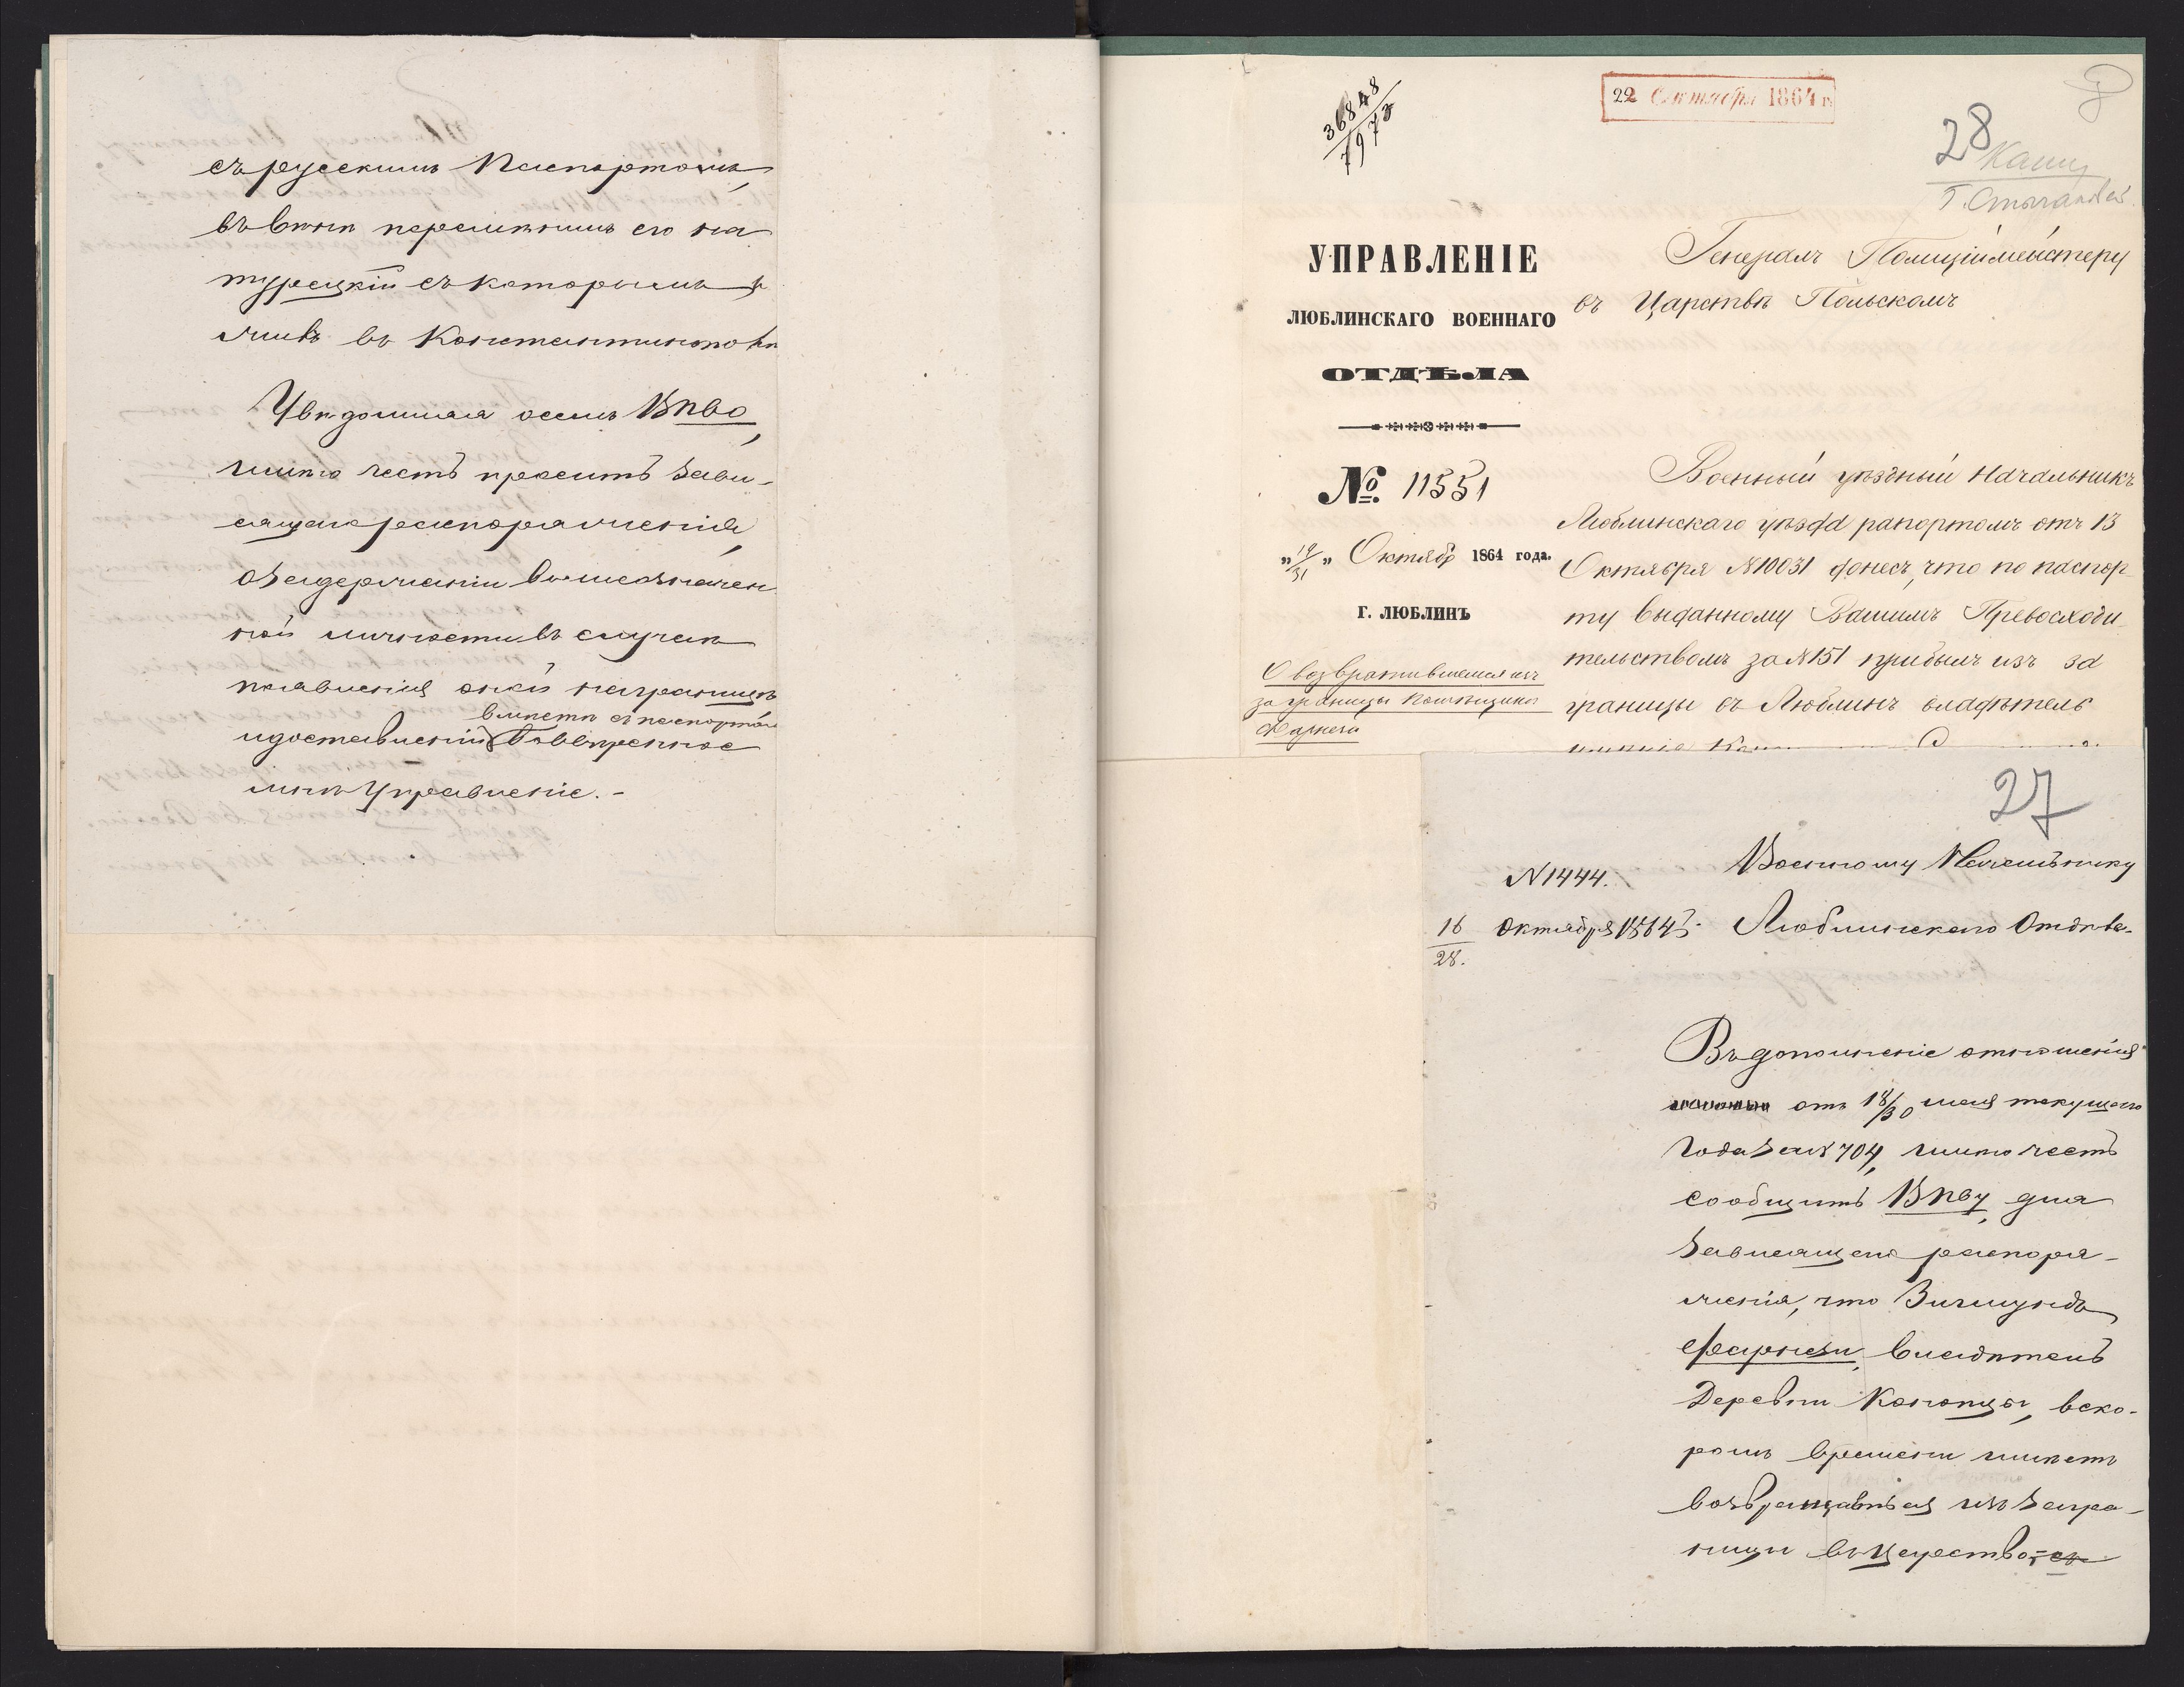 съ русскимъ Паспортомъ,
въ Вѣнѣ перемѣнилъ его на
турецкій съ которымъ и
жилъ въ Константинополѣ
Увѣдомляя о семъ ВПво,
имѣю честь просить зави-
сящаго распоряженія,
о задержаніи вышеозначен
ной личности въ случаѣ
появленія оной на границѣ
вмѣстѣ съ паспортомъ
и доставленіи въ ввѣренное
мнѣ Управленіе.-
36848
7973
22 Октября 1864 г.
28
УПРАВЛЕНІЕ
ЛЮБЛИНСКАГО ВОЕННАГО
ОТДѢЛА
№ 11551
„19/31„ Октябр 1864 года.
Г. ЛЮБЛИНЪ
О возвратившемся изъ
за границы помѣщикѣ
Фарнези
Генералъ Полиціймейстеру
въ Царствѣ Польскомъ
Военный уѣздный Начальникъ
Люблинскаго уѣзда рапортомъ отъ 13
Октября N10031 донесъ, что по паспор-
ту выданному Вашимъ Превосходи-
тельствомъ за N151 прибылъ изъ за
границы въ Люблинъ владѣтель
имѣнія
27
N1444.
16/28. Октября 1864 г.
Военному Начальнику
Люблинскаго Отдѣла.
Въ дополненіе отношенія
отъ 18/30 мая текущаго
Года за N 704, имѣю честь
сообщить ВПву, для
зависящаго распоря-
женія, что Зигмундъ
Фарнези, владѣтель
Деревни Конопцы, вско-
ромъ времени имѣетъ
возвращаться изъ загра-
ницы въ Царство, съ